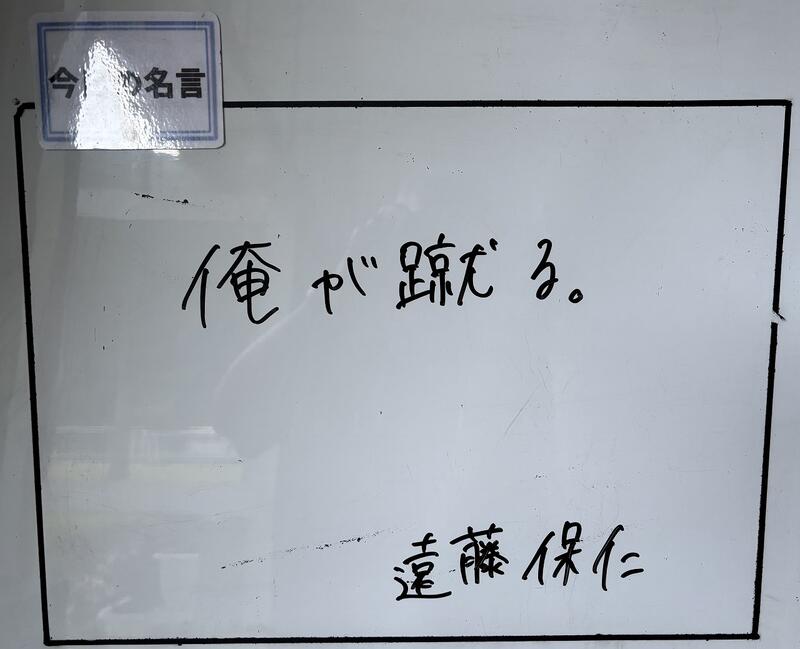 今日の名言
俺が蹴る。
遠藤保仁